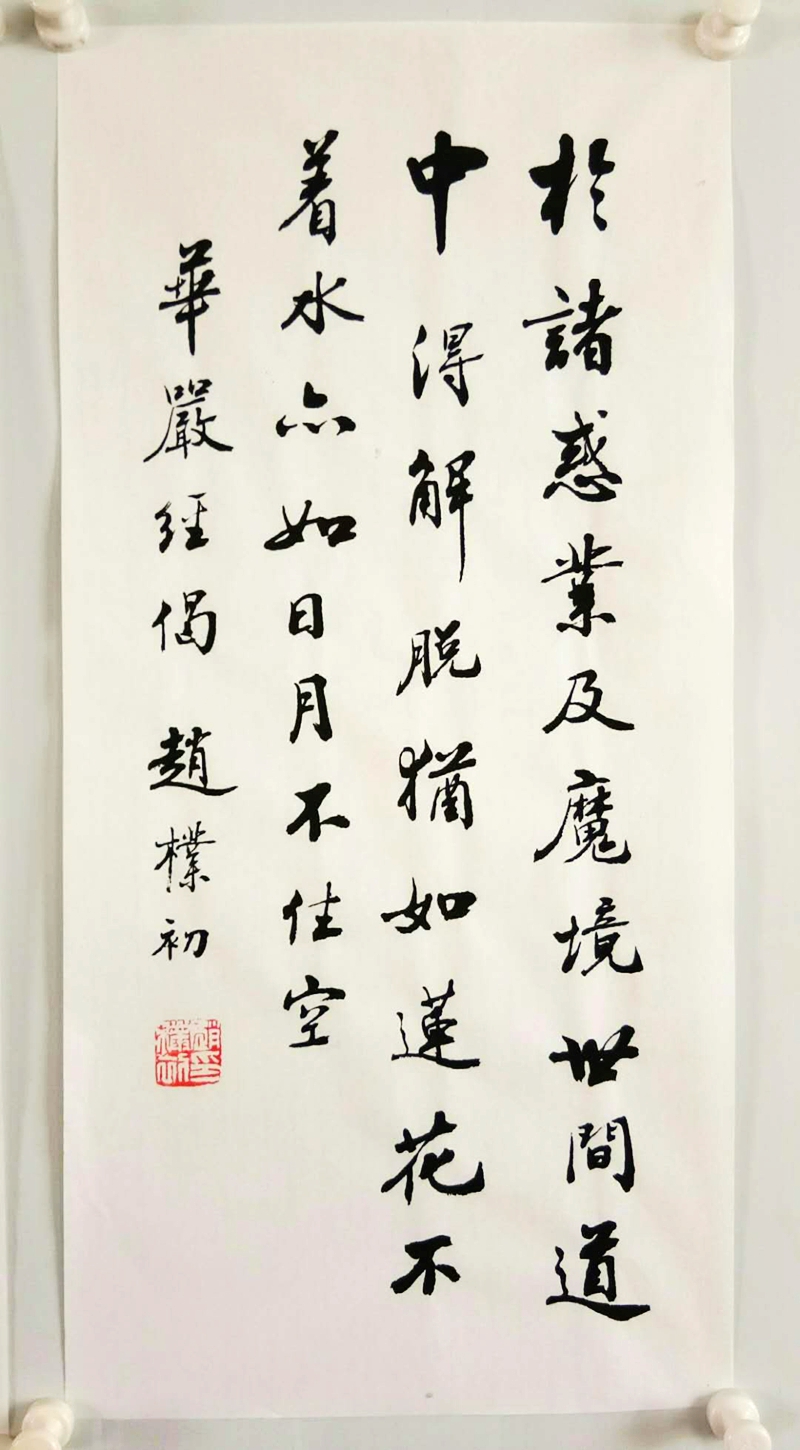 於諸惑業及魔境世間道
中得解脱猶如蓮花不
着水亦如日月不住空
華嚴經偈 趙樸初
趙樸初印